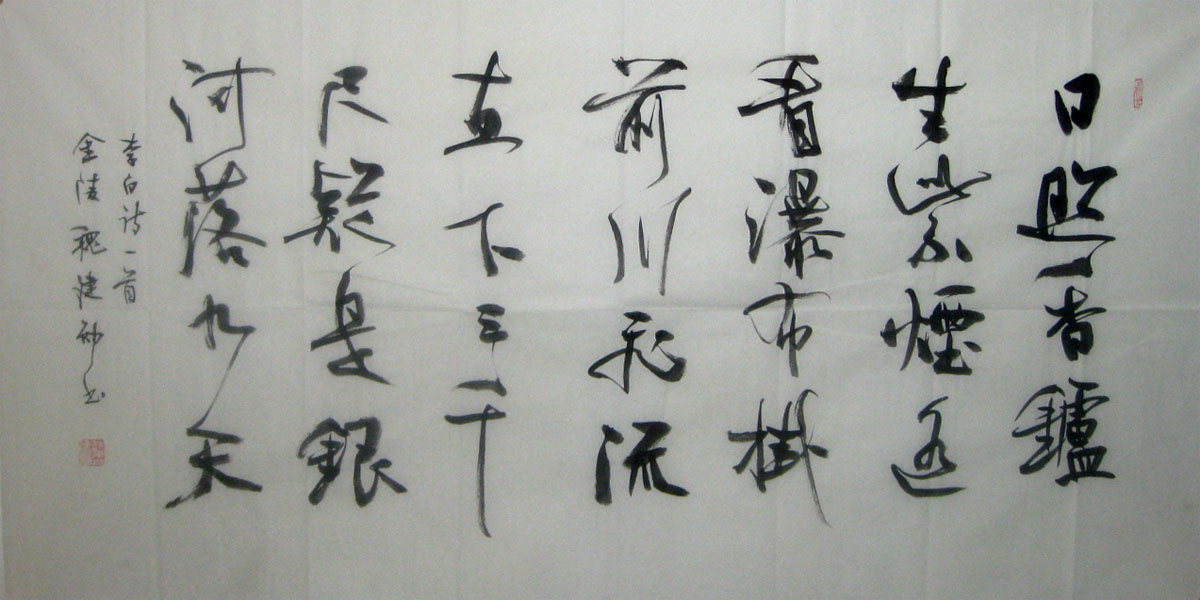 日照香鑪
生紫煙遥
看瀑布掛
前川飛流
直下三千
尺疑是銀
河落九天
李白诗一首
金陵 魏建 书